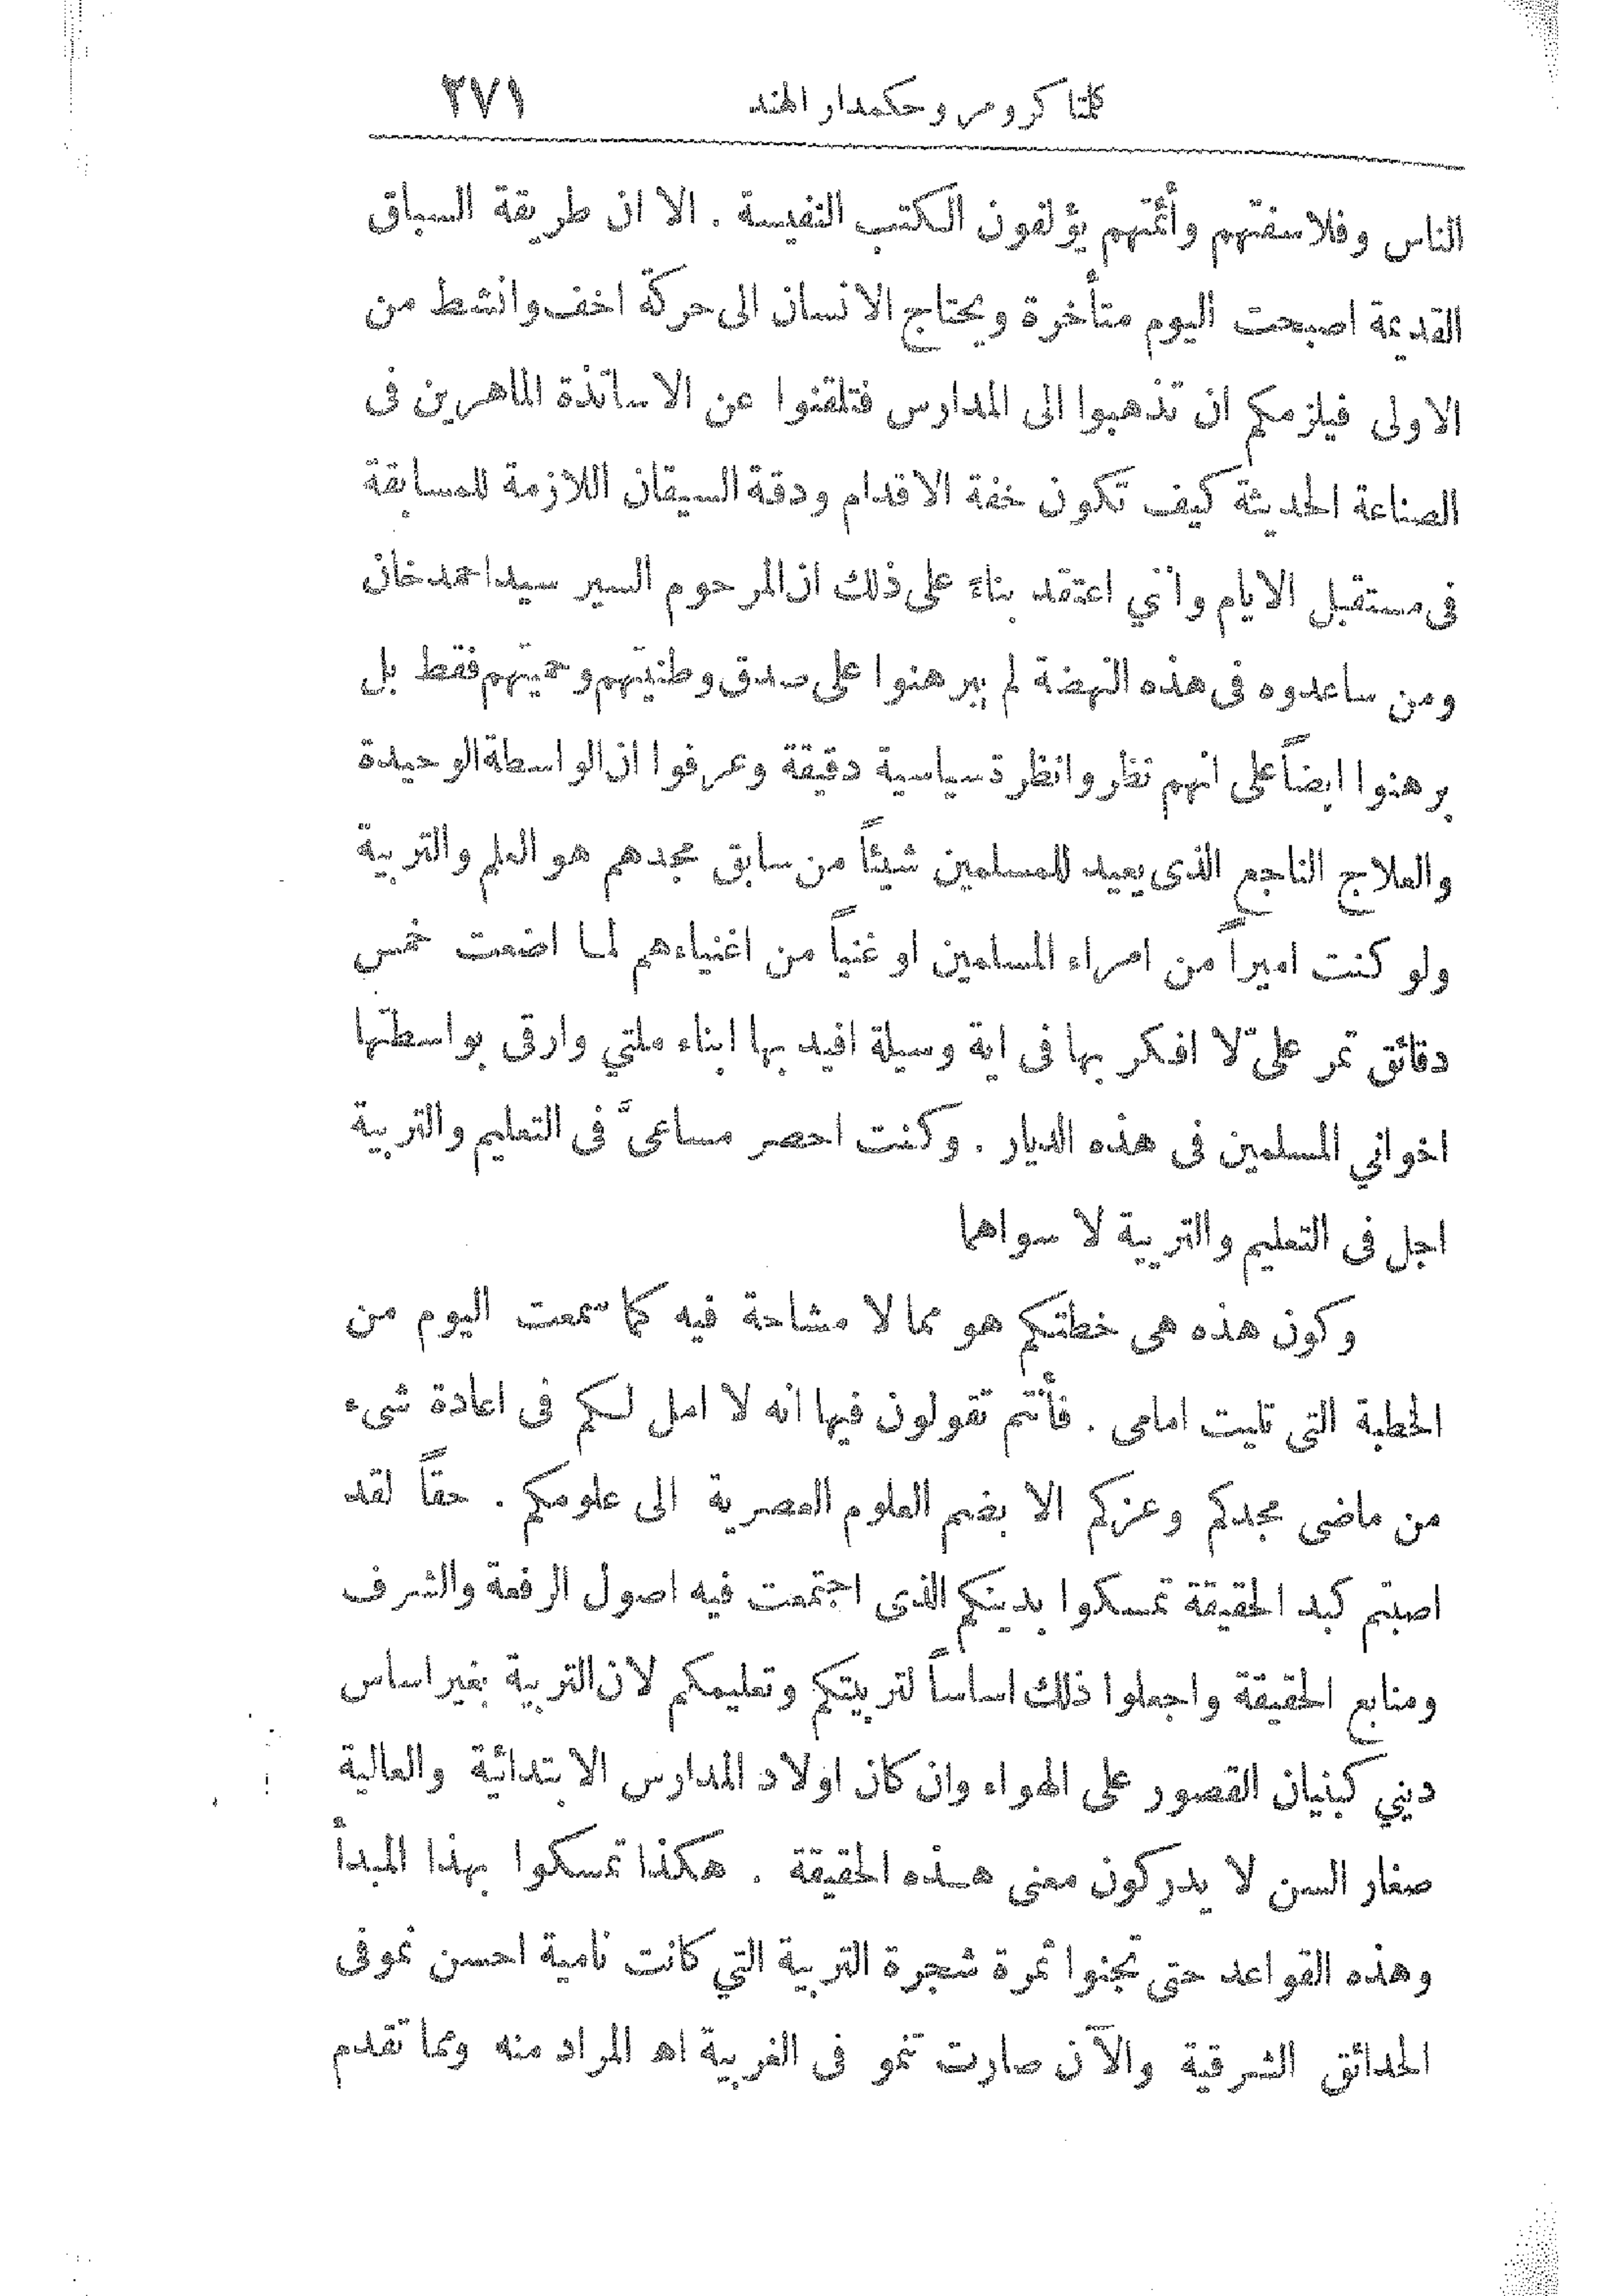 كلمتا كرومر وحكمدار الهند ٢٧١
الناس وفلاسفتهم وأئمتهم يؤلفون الكتب النفيسة . الا ان طريقة السباق
القديمة اصبحت اليوم متأخرة ويحتاج الانسان الى حركة اخف وانشط من
الاولى فيلزمكم ان تذهبوا الى المدارس فتلقنوا عن الاساتذة الماهرين فى
الصناعة الحديثة كيف تكون خفة الاقدام ودقة السيقان اللازمة للمسابقة
فى مستقبل الايام وانى اعتقد بناءً على ذلك ان المرحوم السير سيد احمد خان
ومن ساعدوه فى هذه النهضة لم يبرهنوا على صدق وطنيتهم وحميتهم فقط بل
برهنوا ايضاً على انهم نظروا نظرة سياسية دقيقة وعرفوا ان الواسطة الوحيدة
والعلاج الناجع الذى يعيد للمسلمين شيئاً من سابق مجدهم هو العلم والتربية
ولو كنت اميراً من امراء المسلمين او غنياً من اغنياءهم لما اضعت خمس
دقائق تمر علىّ لا افكر بها فى اية وسيلة افيد بها ابناء ملتي وارقى بواسطتها
اخواني المسلمين فى هذه الديار . وكنت احصر مساعىَّ فى التعليم والتربية
اجل فى التعليم والتربية لا سواهما
وكون هذه هى خطتكم هو مما لا مشاحة فيه كما سمعت اليوم من
الخطبة التى تليت امامى . فأنتم تقولون فيها انه لا امل لكم فى اعادة شىء
من ماضى مجدكم وعزكم الا بضم العلوم العصرية الى علومكم . حقاً لقد
اصبتم كبد الحقيقة تمسكوا بدينكم الذى اجتمعت فيه اصول الرفعة والشرف
ومنابع الحقيقة واجعلوا ذلك اساساً لتربيتكم وتعليمكم لان التربية بغير اساس
ديني كبنيان القصور على الهواء وان كان اولاد المدارس الابتدائية والعالية
صغار السن لا يدركون معنى هذه الحقيقة . هكذا تمسكوا بهذا المبدأ
وهذه القواعد حتى تجنوا ثمرة شجرة التربية التي كانت نامية احسن نمو فى
الحدائق الشرقية والآن صارت تنمو فى الغربية اه المراد منه ومما تقدم